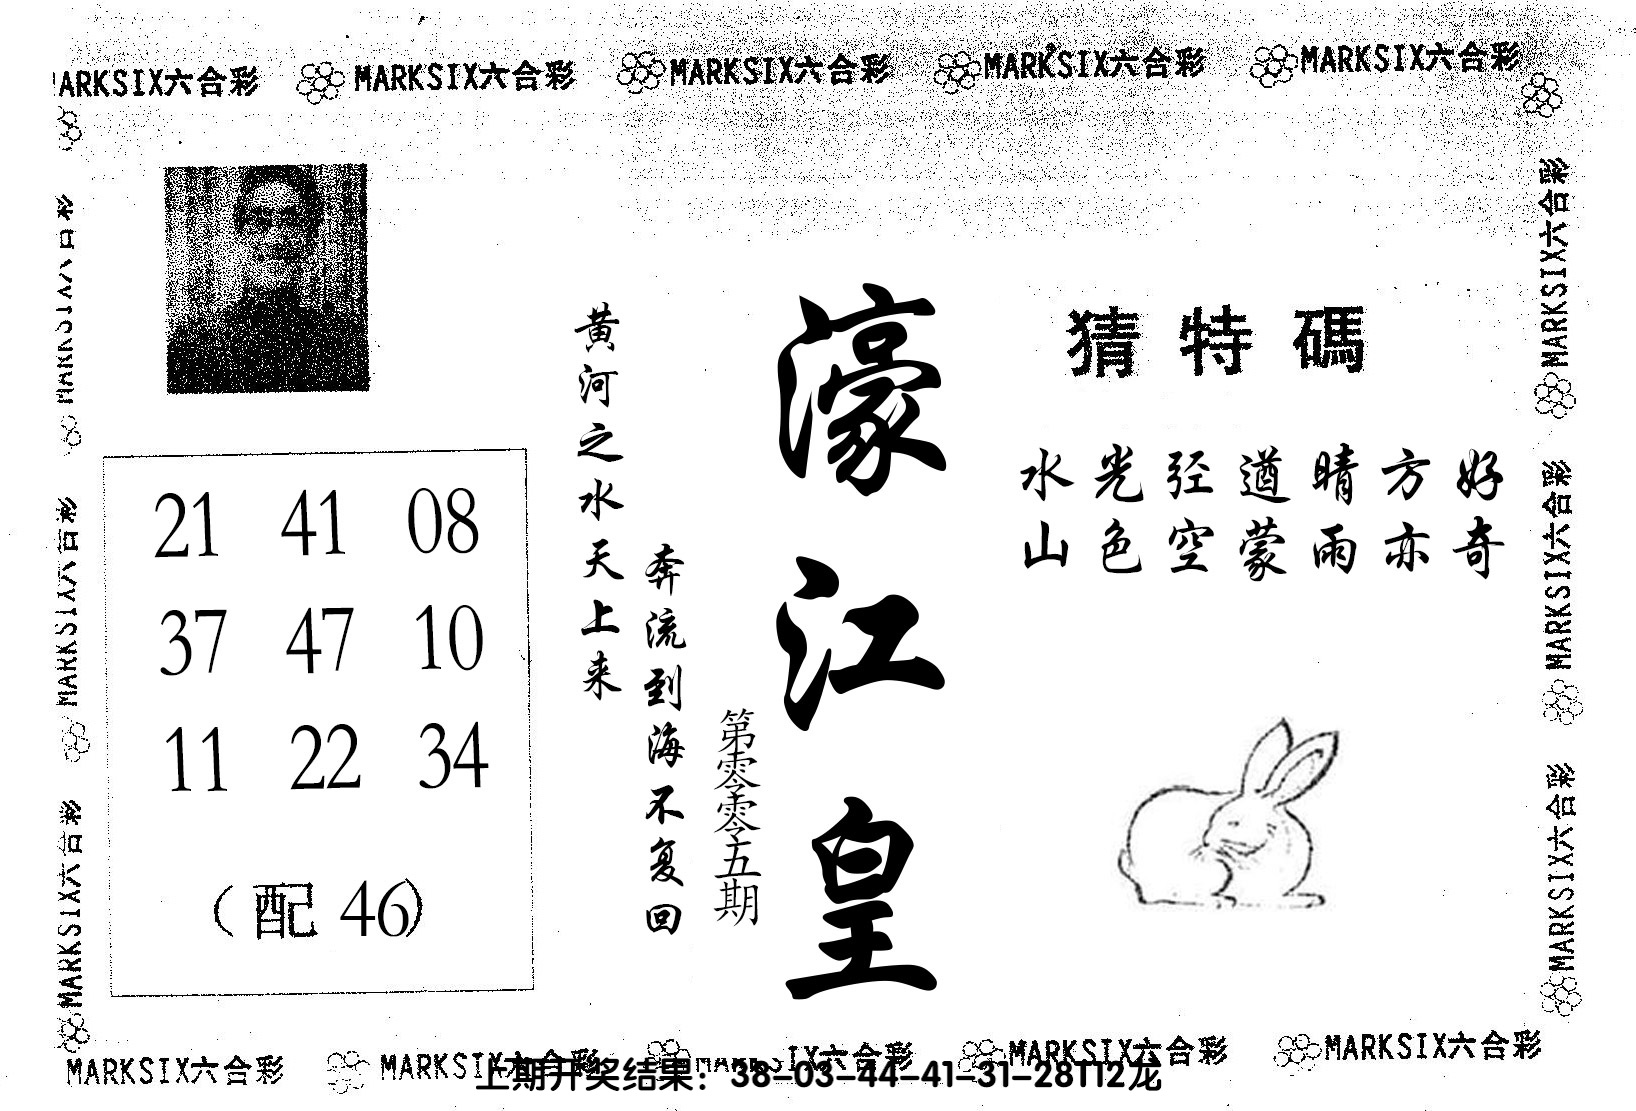 MARKSIX六合彩 MARKSIX六合彩 MARKSIX六合彩 MARKSIX六合彩
ARKSIX六合彩
MARKSIX六合彩
MARKSIX六合彩
MARKSIX六合彩
21 41 08
37 47 10
11 22 34
(配 46)
黄河之水天上来
奔流到海不复回
第零零五期
濠江皇
猜特碼
水光径遒晴方好
山色空蒙雨亦奇
MARKSIX六合彩
MARKSIX六合彩
MARKSIX六合彩
MARKSIX六合彩 MARKSIX六合彩 MARKSIX六合彩 MARKSIX六合彩
上期开奖结果：38-03-44-41-31-28T12龙